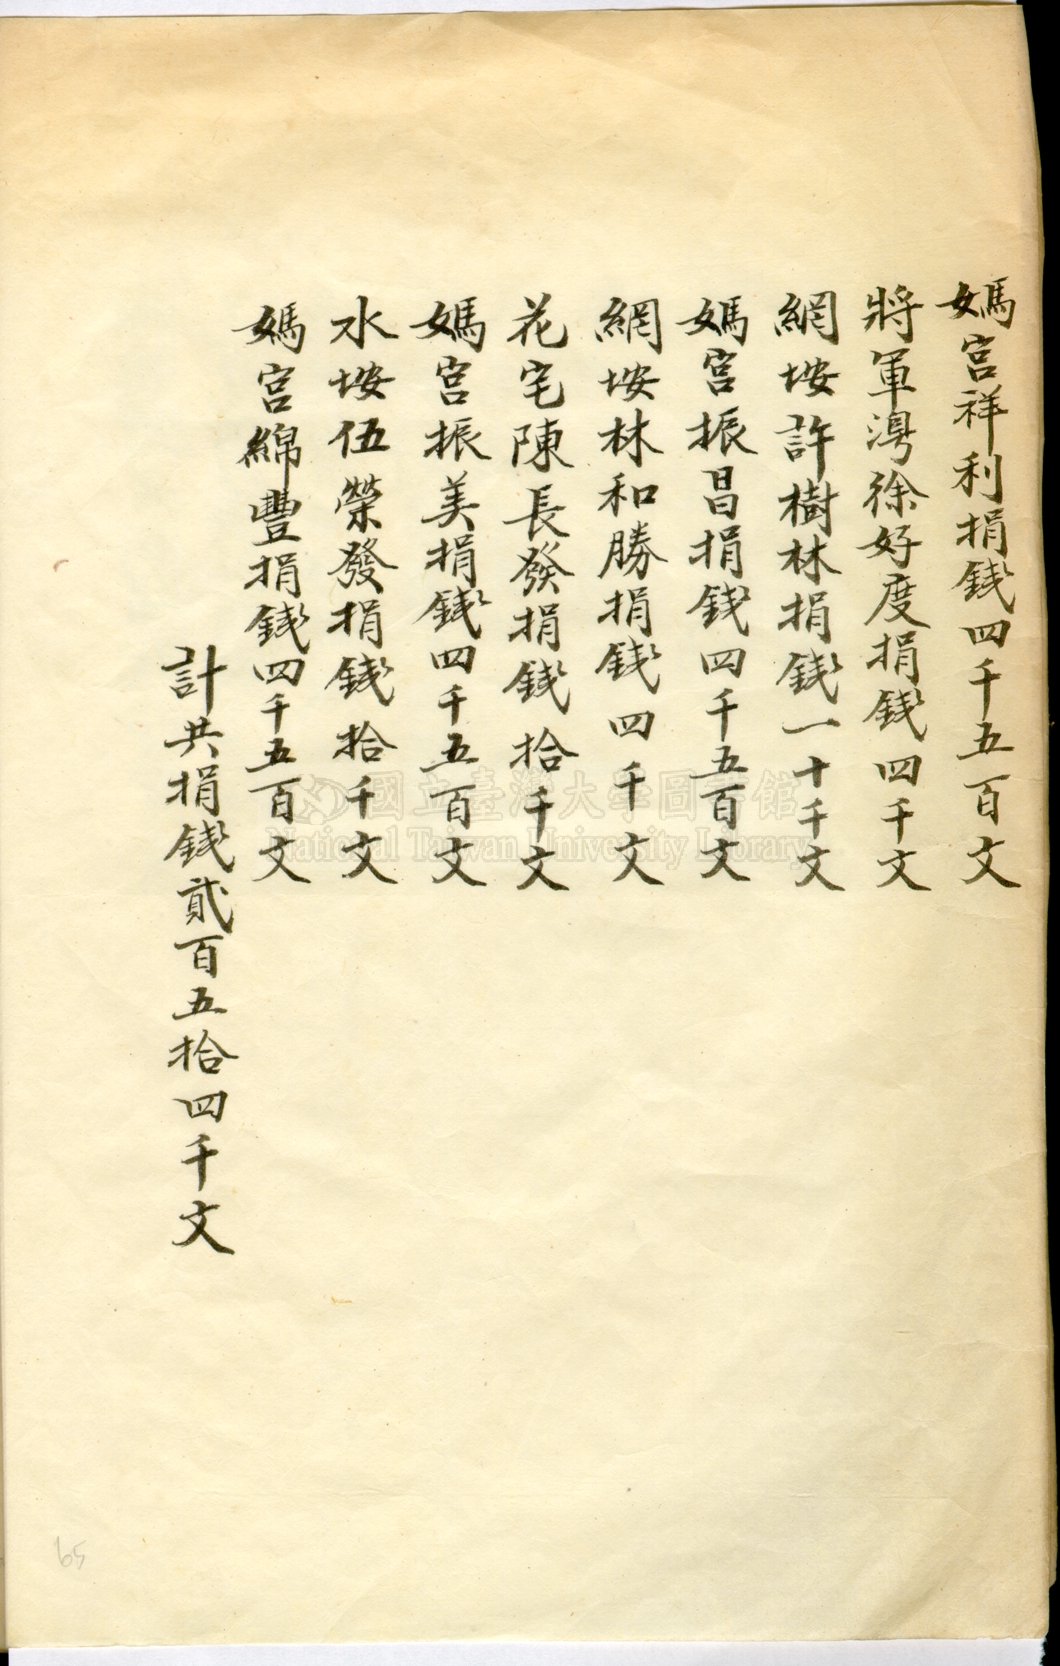 媽宮祥利捐錢四千五百文
將軍澚徐好度捐錢四千文
網垵許樹林捐錢一十千文
媽宮振昌捐錢四千五百文
網垵林和勝捐錢四千文
花宅陳長發捐錢拾千文
媽宮振美捐錢四千五百文
水垵伍榮發捐錢拾千文
媽宮綿豐捐錢四千五百文
計共捐錢貳百五拾四千文
國立臺灣大學圖書館
National Taiwan University Library
65